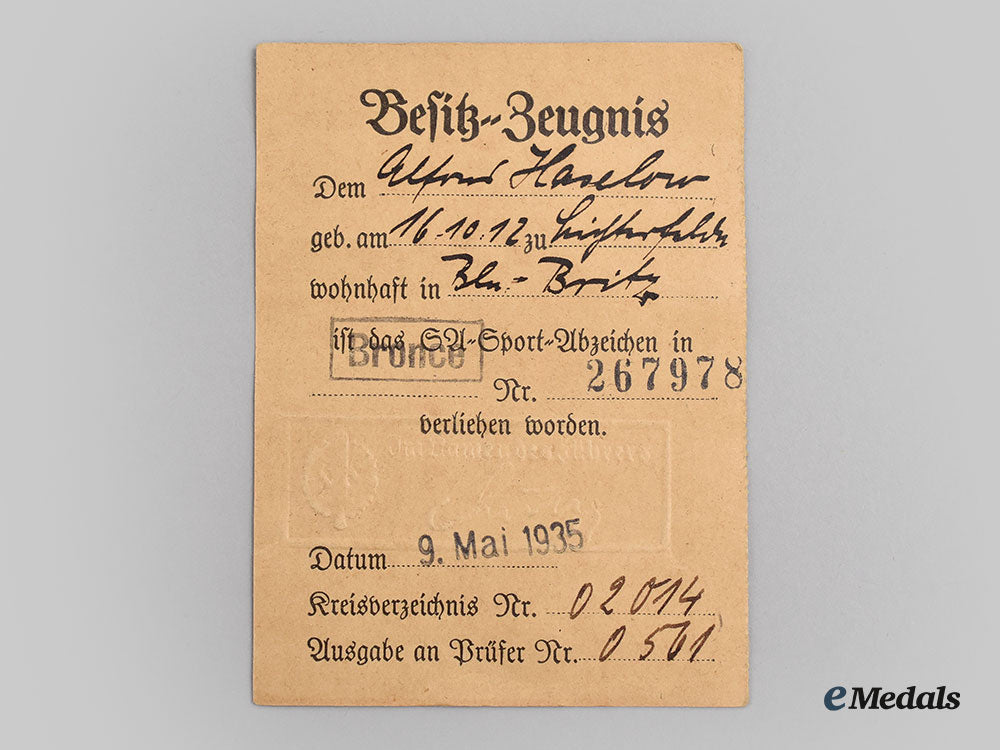 Besitz-Zeugnis
Dem Alfred Haselow
geb. am 16.10.12 zu Lichterfelde
wohnhaft in Bln.-Britz
ist das SA-Sport-Abzeichen in
Bronce
Nr. 267978
verliehen worden.
Im Namen des Führers
Datum 9. Mai 1935
Kreisverzeichnis Nr. 02014
Ausgabe an Prüfer Nr. 0561
eMedals